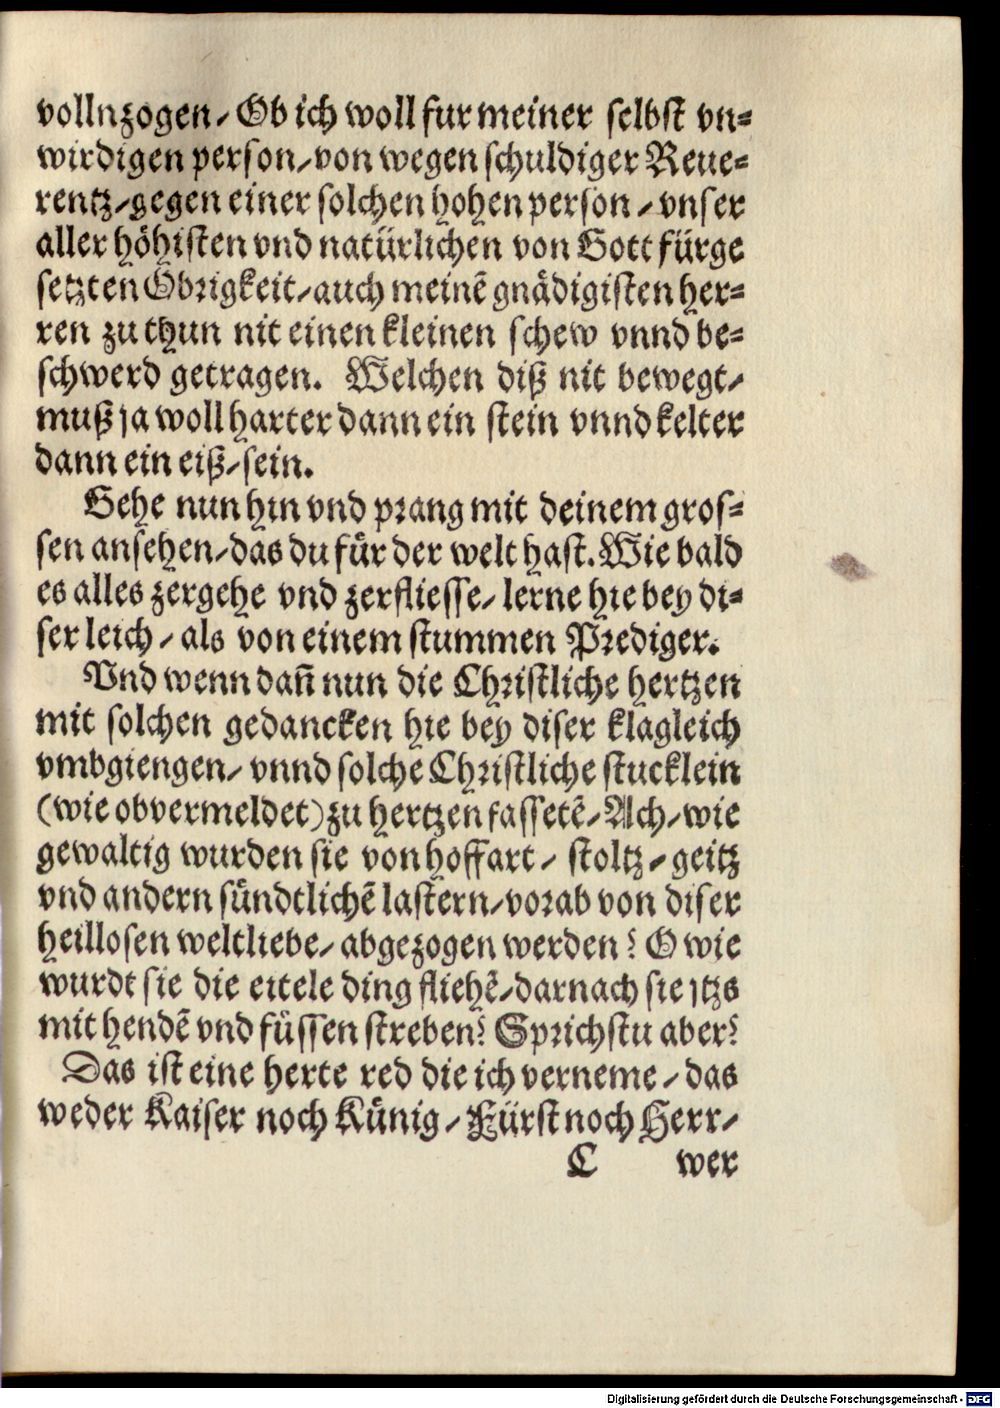 vollnzogen / Ob ich woll fur meiner selbst vn=
wirdigen person / von wegen schuldiger Reue=
rentz / gegen einer solchen hohen person / vnser
aller höhisten vnd natürlichen von Gott fürge
setzten Obrigkeit / auch meinē gnädigisten her=
ren zu thun nit einen kleinen schew vnnd be=
schwerd getragen. Welchen diß nit bewegt /
muß ja woll harter dann ein stein vnnd kelter
dann ein eiß / sein.
Gehe nun hin vnd prang mit deinem gros=
sen ansehen / das du für der welt hast. Wie bald
es alles zergehe vnd zerfliesse / lerne hie bey di=
ser leich / als von einem stummen Prediger.
Vnd wenn dañ nun die Christliche hertzen
mit solchen gedancken hie bey diser klagleich
vmbgiengen / vnnd solche Christliche stucklein
(wie obvermeldet) zu hertzen fassetē / Ach / wie
gewaltig wurden sie von hoffart / stoltz / geitz
vnd andern sündtlichē lastern / vorab von diser
heillosen weltliebe / abgezogen werden? O wie
wurdt sie die eitele ding fliehē / darnach sie jtzs
mit hendē vnd füssen streben? Sprichstu aber?
Das ist eine herte red die ich verneme / das
weder Kaiser noch Künig / Fürst noch Herr /
C wer
Digitalisierung gefördert durch die Deutsche Forschungsgemeinschaft - DFG